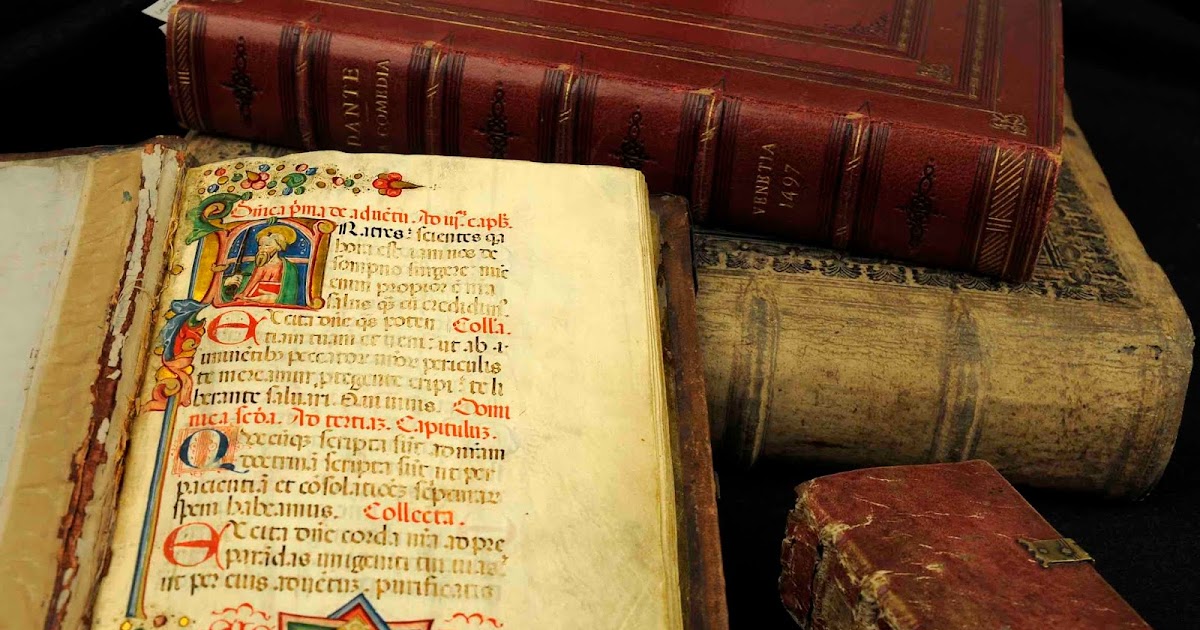 DANTE
LA COMEDIA
VENETIA
1497
Dnica p̄ma de aduētu. Ad uṡ. capłz.
Ratres: scientes qa
hora est iam nos de
sompno surgere: nūc
enim propior ē nrā
salus q̄ cū credidimꝰ.
Excita dn̄e q̄s poten Coll'a.
tiam tuam et ueni: ut ab i-
minentibꝫ peccatoꝝ nr̄oꝝ periculis
te mereamur, ptegente eripi: te li
berante saluari. Qui uiuis. Domi
nica scda. Ad tertiaz. Capituluz.
Quecūqꝫ scripta sūt ad nr̄am
doctrinā scripta sūt ut per
pacientiā et cōsolatiōeꝫ scpturaꝝ
spem habeamus. Collecta.
Excita dn̄e corda nr̄a ad pre
parādas unigeniti tui uias:
ut per eius aduētuꝫ, purificatis